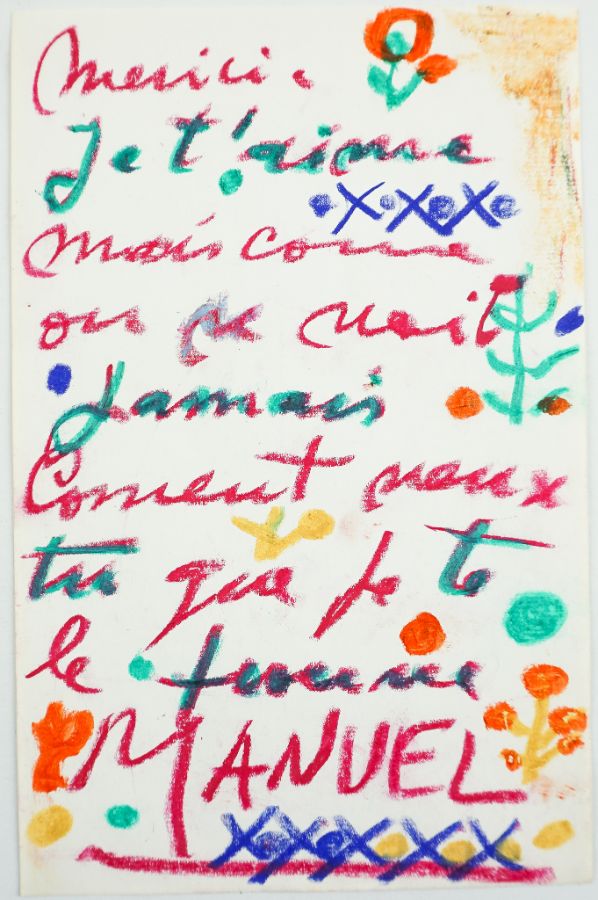 Merici.
Je t'aime
xxxx
mais come
on se voit
Jamais
Coment veux
tu que je te
le
MANUEL
xxxxxx